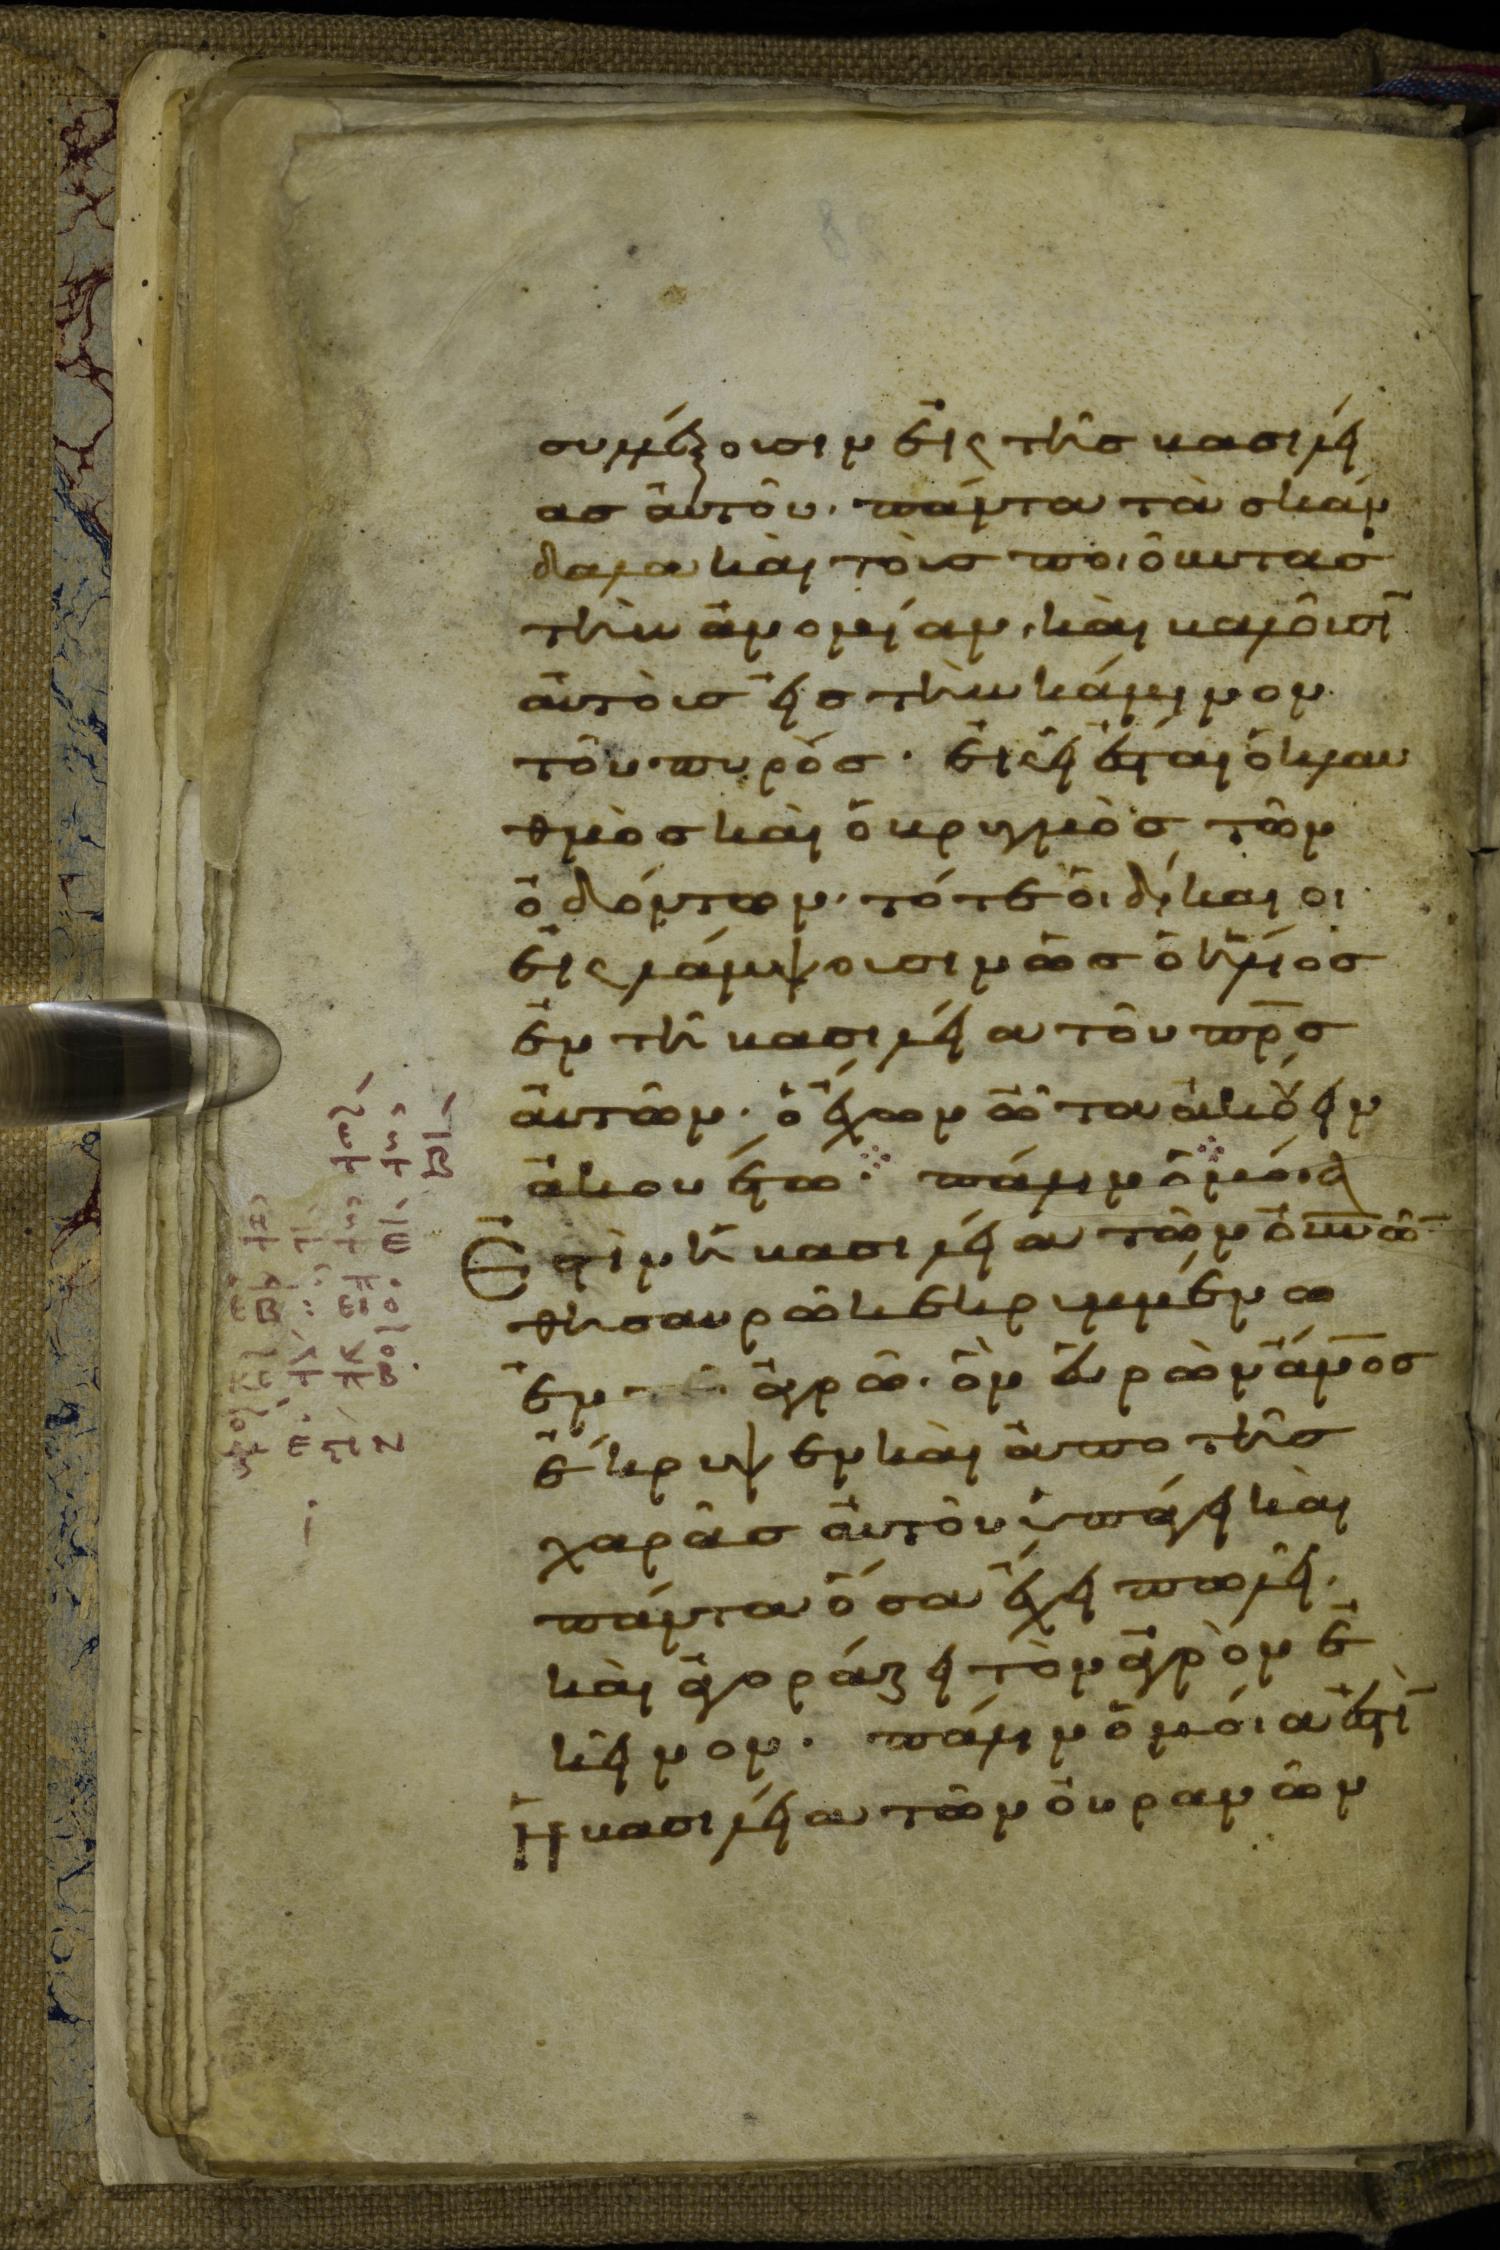 συλλέξουσιν εἰς τῆς βασιλεί
ας αὐτοῦ· πάντα τὰ σκάν
δαλα καὶ τοὺς ποιοῦντας
τὴν ἀνομίαν· καὶ βαλοῦσι
αὐτοὺς εἰς τὴν κάμινον
τοῦ πυρός· ἐκεῖ ἔσται ὁ κλαυ
θμὸς καὶ ὁ βρυγμὸς τῶν
ὀδόντων· τότε οἱ δίκαιοι
ἐκλάμψουσιν ὡς ὁ ἥλιος
ἐν τῇ βασιλείᾳ τοῦ πρ̅ς
αὐτῶν· ὁ ἔχων ὦτα ἀκούειν
ἀκουέτω· πάλιν ὁμοία
ἐστὶν ἡ βασιλεία τῶν οὐν̅ω̅
θησαυρῷ κεκρυμμένῳ
ἐν ἀγρῷ· ὃν εὑρὼν ἄν̅ος
ἔκρυψεν καὶ ἀπο τῆς
χαρᾶς αὐτοῦ ὑπάγει καὶ
πάντα ὅσα ἔχει πωλεῖ·
καὶ ἀγοράζει τὸν ἀγρὸν ἐ
κεῖνον· πάλιν ὁμοία ἐστὶ
Ἡ βασιλεία τῶν οὐρανῶν